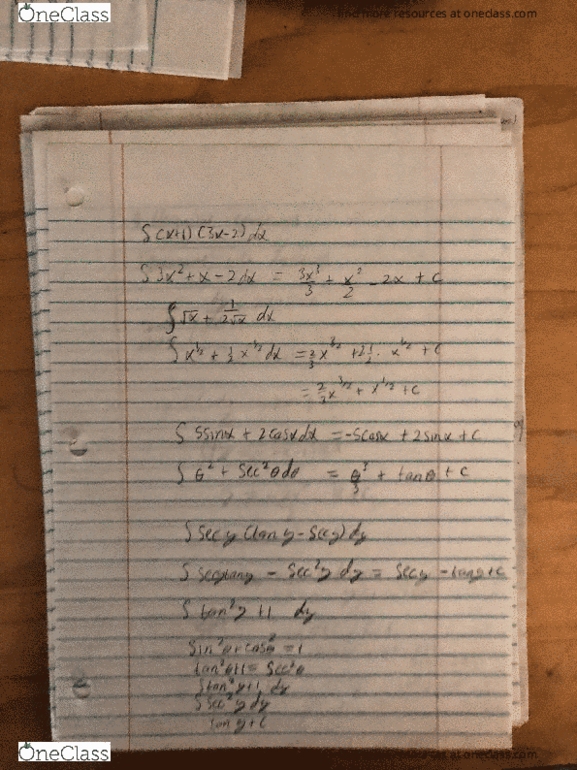 OneClass
find more resources at oneclass.com
∫(x+1)(3x-2)dx
∫3x²+x-2dx = 3x³/3 + x²/2 - 2x + C
∫√x + 1/(2√x) dx
∫x^½ + ½x^-½ dx = ⅔x^3/2 + 2·½·x^½ + C
= ⅔x^3/2 + x^1/2 + C
∫5sinx + 2cosxdx = -5cosx + 2sinx + C
∫θ² + sec²θdθ = θ³/3 + tanθ + C
∫secy(tany-secy)dy
∫secytany - sec²y dy = secy - tany+C
∫tan²y+1 dy
sin²θ+cos²θ=1
tan²θ+1=sec²θ
∫tan²y+1 dy
∫sec²y dy
tany+C
OneClass
find more resources at oneclass.com